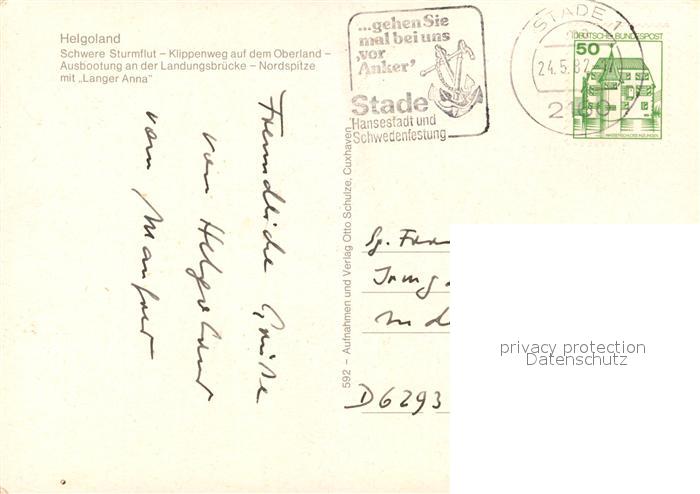 Helgoland
Schwere Sturmflut – Klippenweg auf dem Oberland –
Ausbootung an der Landungsbrücke – Nordspitze
mit „Langer Anna”
...gehen Sie
mal bei uns
‚vor
Anker’
Stade
Hansestadt und
Schwedenfestung
STADE 1
24.5.82
2160
50
DEUTSCHE BUNDESPOST
WASSERSCHLOSS INZLINGEN
Freundliche Grüße
von Helgoland
vom Manfred
592 – Aufnahmen und Verlag Otto Schulze, Cuxhaven
D6293
privacy protection
Datenschutz